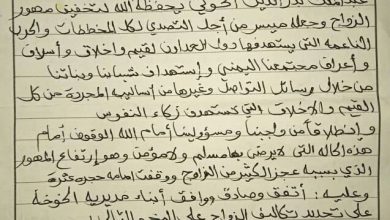 عبدالملك بدر الدين الحوثي يحفظه الله لتخفيض مهور
الزواج وجعله ميسر من أجل التصدي لكل المخططات والحرب
الناعمه التي يستهدفها دول العدوان لقيم واخلاق وأسلاف
وأعراف مجتمعنا اليمني وإستهداف شبابنا وبناتنا
من خلال وسائل التواصل وغيرها من أساليبه المجردة من كل
القيم والاخلاق التي تستهدف زكاء النفوس
وإنطلاقاً من واجبنا ومسؤوليتنا أمام الله الوقوف أمام
هذه الحاله التي لا يرضى بها مسلم ولا مؤمن وهو إرتفاع المهور
الذي يسبب عجز الكثير من الزواج ووقفت أمامه حجر عثرة
وعليه : أتفق وصادق ووافق أبناء مديرية الخوخة
على تحديد تكاليف الزواج على النحو التالي